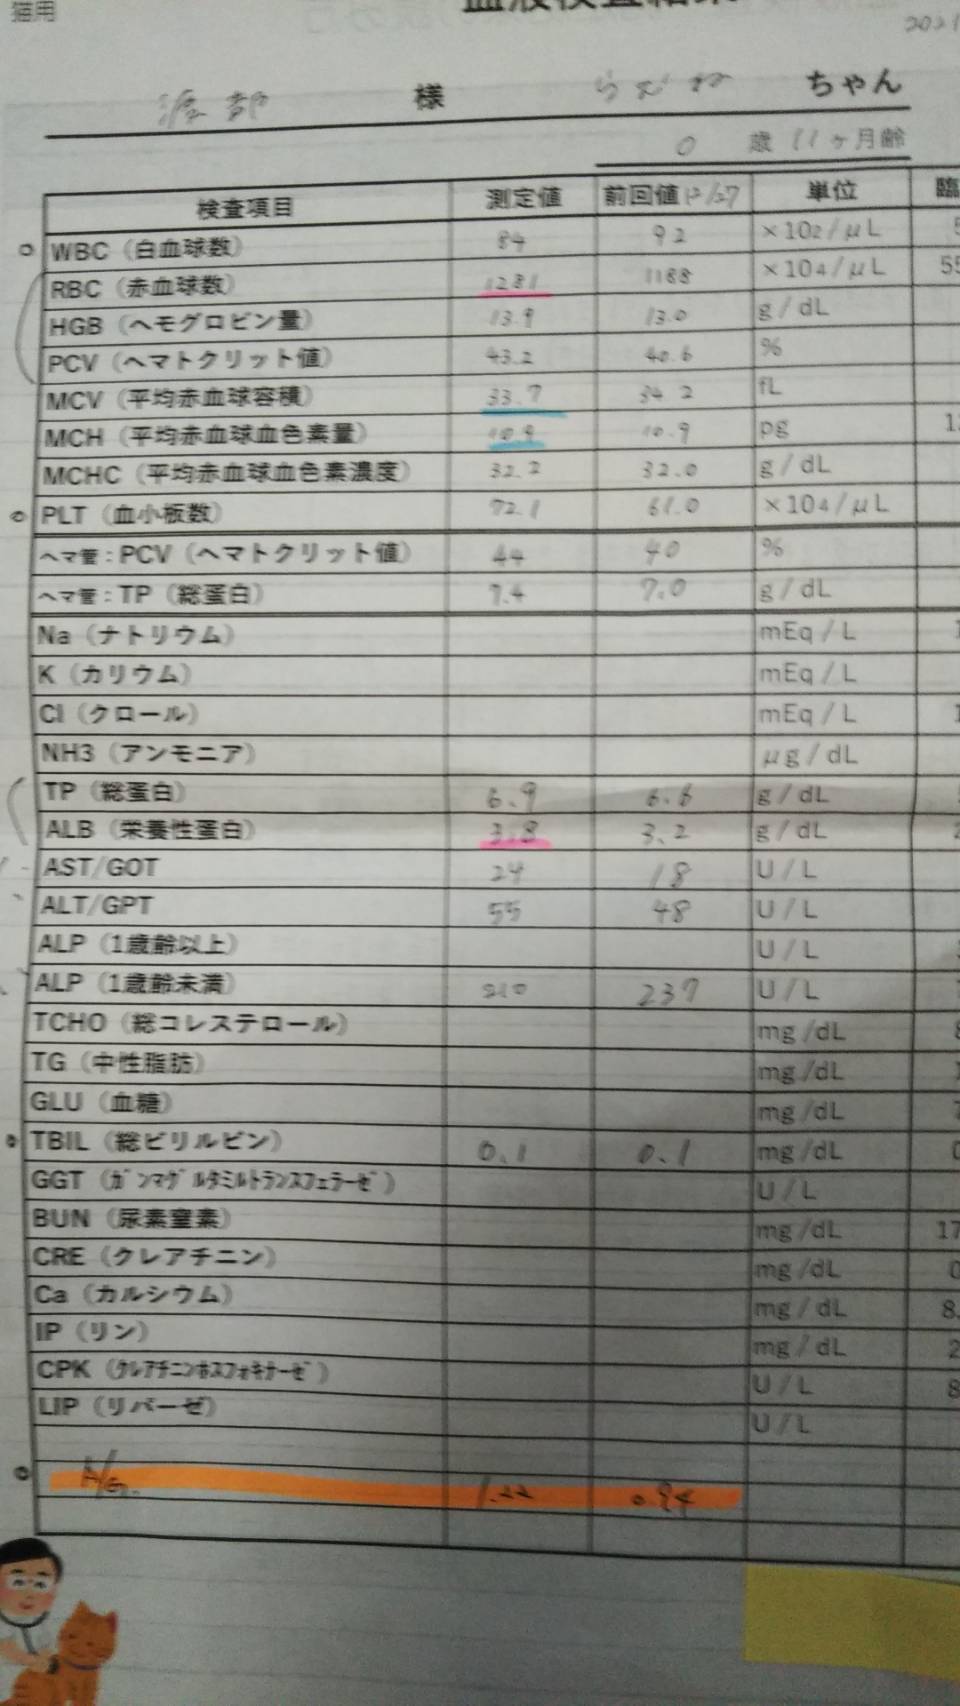 猫用
2021
渡部 様 ちゃん
0 歳 11ヶ月齢
検査項目 測定値 前回値 12/27 単位 臨
WBC（白血球数） 84 92 ×102/μL 5
RBC（赤血球数） 1281 1188 ×104/μL 55
HGB（ヘモグロビン量） 13.9 13.0 g/dL
PCV（ヘマトクリット値） 43.2 40.6 %
MCV（平均赤血球容積） 33.7 34.2 fL
MCH（平均赤血球血色素量） 10.9 10.9 pg 1
MCHC（平均赤血球血色素濃度） 32.2 32.0 g/dL
PLT（血小板数） 72.1 61.0 ×104/μL
ヘマ管：PCV（ヘマトクリット値） 44 40 %
ヘマ管：TP（総蛋白） 7.4 7.0 g/dL
Na（ナトリウム） mEq/L 1
K（カリウム） mEq/L
Cl（クロール） mEq/L 1
NH3（アンモニア） μg/dL
TP（総蛋白） 6.9 6.6 g/dL
ALB（栄養性蛋白） 3.8 3.2 g/dL 2
AST/GOT 24 18 U/L
ALT/GPT 55 48 U/L
ALP（1歳齢以上） U/L
ALP（1歳齢未満） 210 237 U/L
TCHO（総コレステロール） mg/dL 8
TG（中性脂肪） mg/dL 1
GLU（血糖） mg/dL 7
TBIL（総ビリルビン） 0.1 0.1 mg/dL 0
GGT（ｶﾞﾝﾏｸﾞﾙﾀﾐﾙﾄﾗﾝｽﾌｪﾗｰｾﾞ） U/L
BUN（尿素窒素） mg/dL 17
CRE（クレアチニン） mg/dL 0
Ca（カルシウム） mg/dL 8.
IP（リン） mg/dL 2
CPK（ｸﾚｱﾁﾆﾝﾎｽﾌｫｷﾅｰｾﾞ） U/L 8
LIP（リパーゼ） U/L
A/G. 1.22 0.94